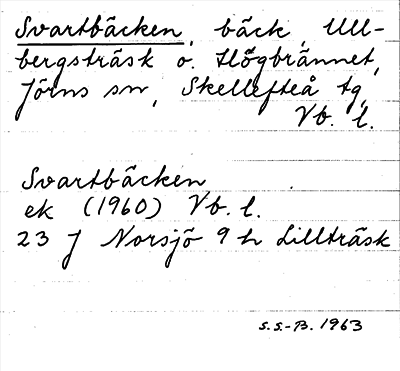 Svartbäcken, bäck, Ull-
bergsträsk o. Högbrännet,
Jörns sn, Skellefteå tg,
Vb. l.
Svartbäcken
ek (1960) Vb. l.
23 J Norsjö 9 h Lillträsk
S.S.-B. 1963